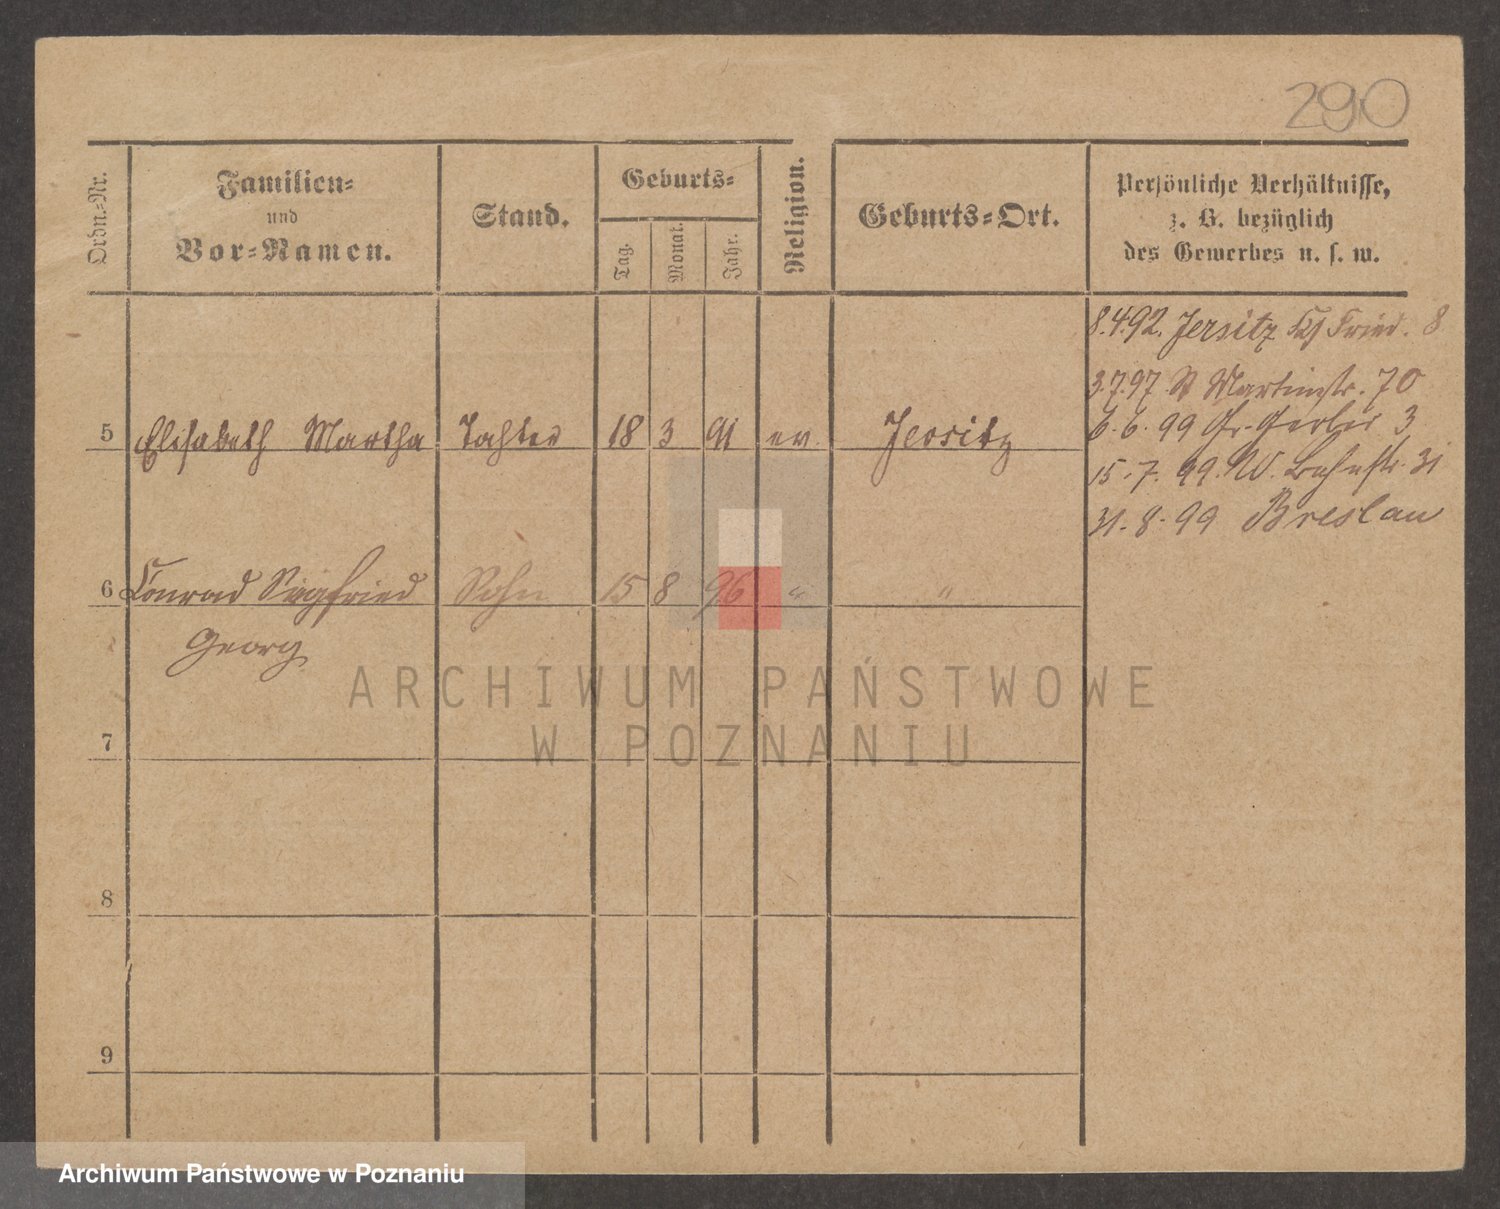 290
Ordn.-Nr.
Familien-
und
Vor-Namen.
Stand.
Geburts-
Tag.
Monat.
Jahr.
Religion.
Geburts-Ort.
Persönliche Verhältnisse,
z. B. bezüglich
des Gewerbes u. s. w.
5 Elisabeth Martha Tochter 18 3 91 ev. Jersitz
6 Conrad Siegfried Sohn 15 8 96 " "
Georg
7
8
9
8.4.92. Jersitz Fried. 8
3.7.97 St Martinstr. 70
6.6.99 Gr. Gerber 3
15.7.99. W. Bahnstr. 31
31.8.99 Breslau
ARCHIWUM PAŃSTWOWE
W POZNANIU
Archiwum Państwowe w Poznaniu